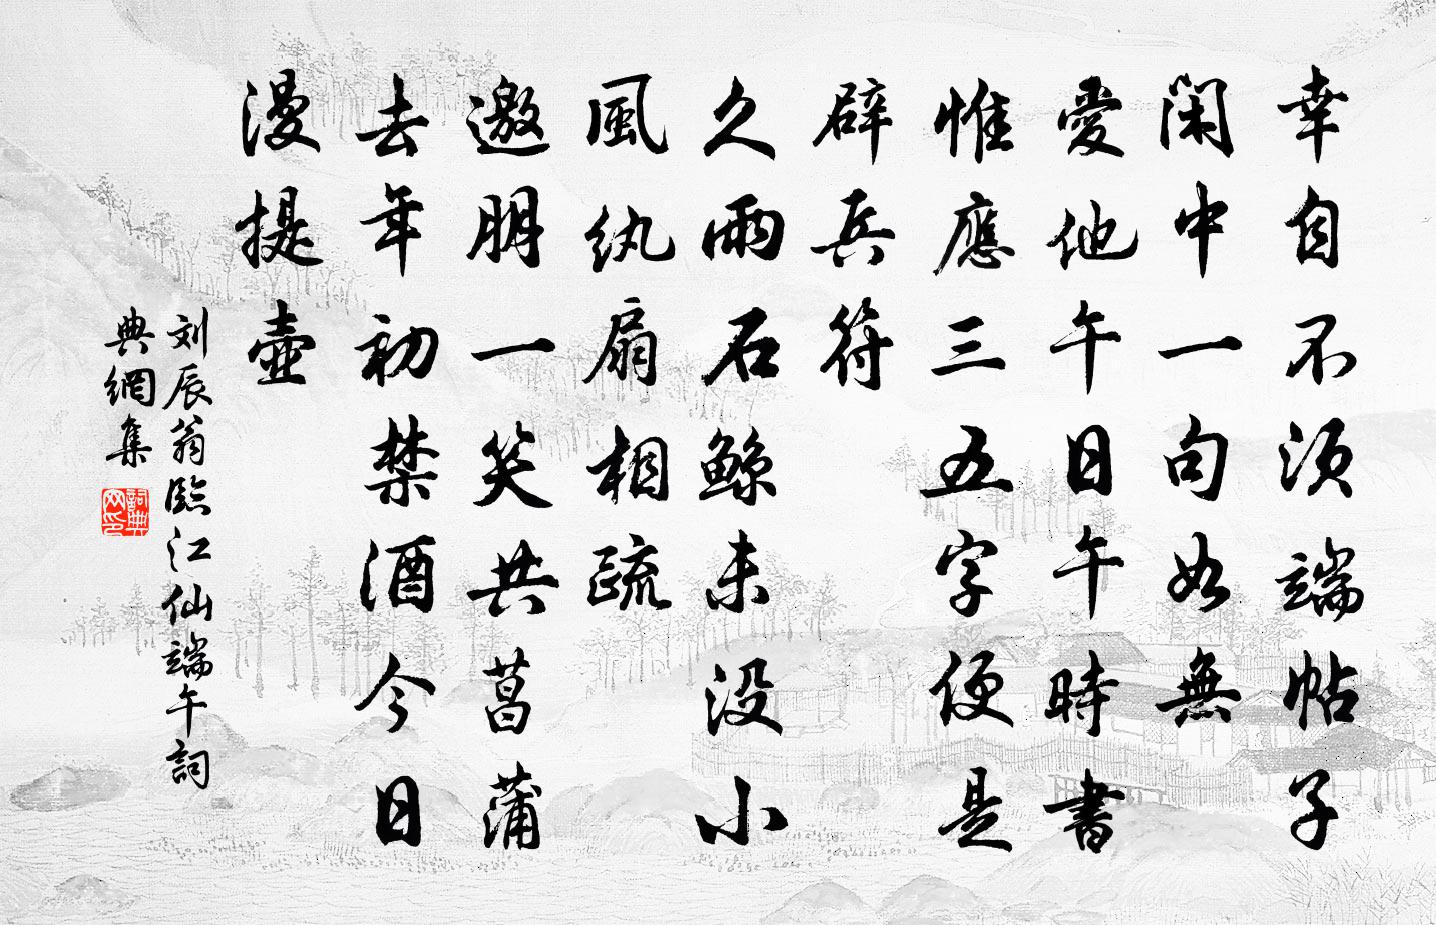 幸自不須端帖子
閑中一句如無
愛他午日午時書
惟應三五字便是
辟兵符
久雨石鯨未没小
風紈扇相疏
邀朋一笑共菖蒲
去年初禁酒今日
漫提壺
刘辰翁臨江仙端午詞
典網集
詞典网印